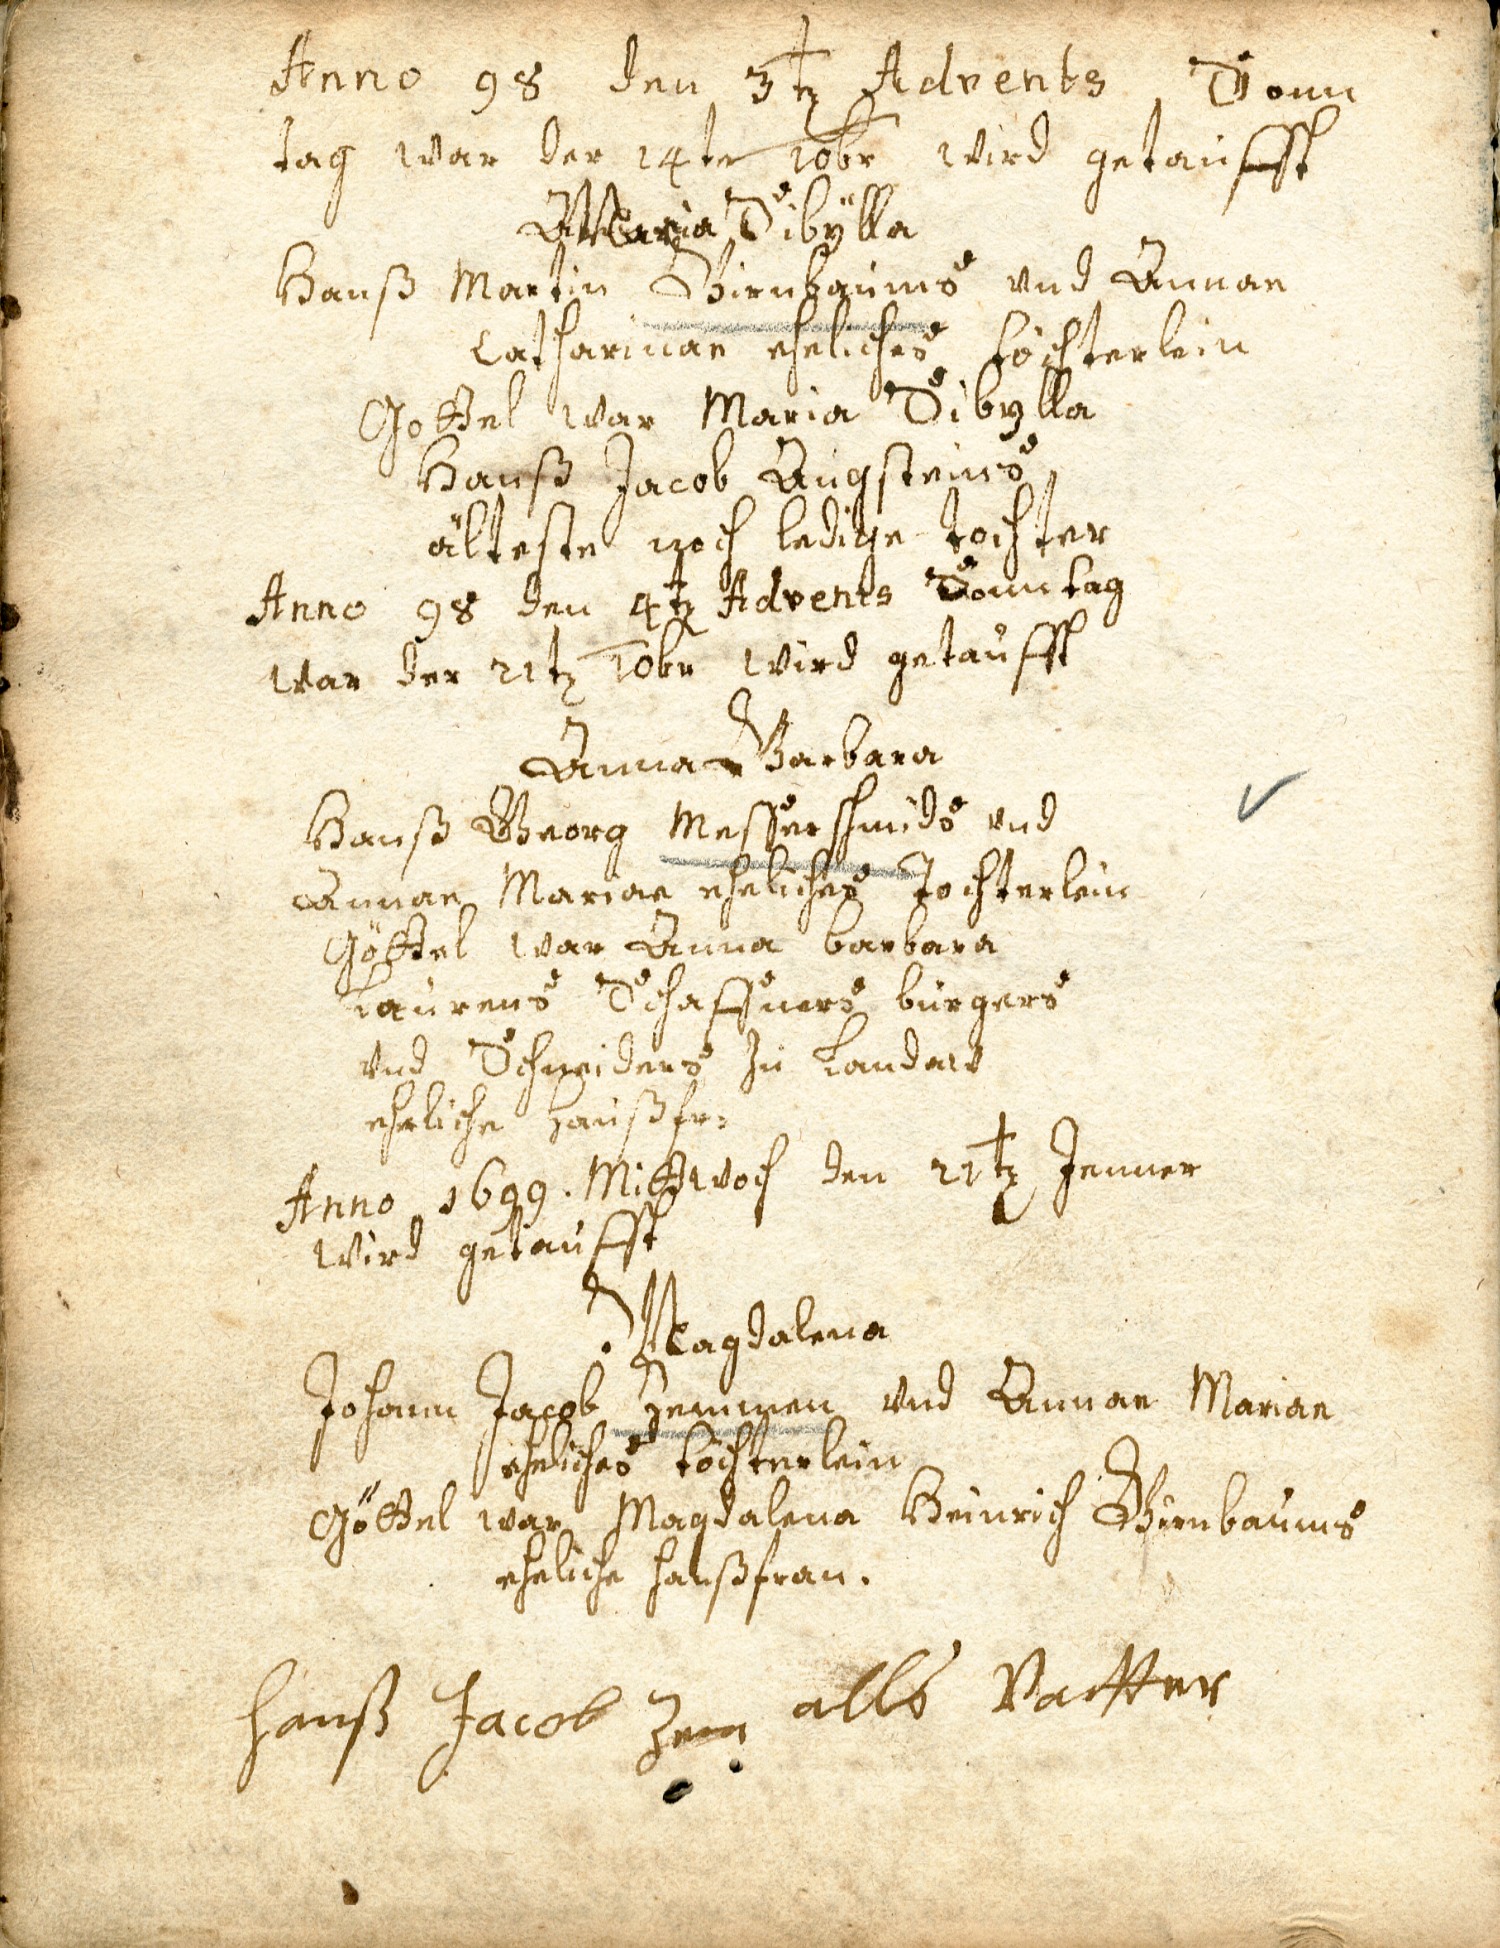 Anno 98 den 3tz Advents Sonn
tag war der 14te 10br wird getaufft
Maria Sibÿlla
Hanß Martin Birnbaums vnd Annae
Catharinae eheliches töchterlein
Gottel war Maria Sibylla
Hanß Jacob Augsteins
älteste noch ledige tochter
Anno 98 den 4tz Advents Sonntag
war der 21tz 10br wird getaufft
Anna Barbara
Hanß Georg Messerschmids vnd
Annae Mariae eheliches Tochterlein
Göttel war Anna barbara
Laurens Schaffners burgers
vnd Schneiders zu Landaw
eheliche haußfr:
Anno 1699. Mittwoch den 21tz Jenner
wird getaufft
Magdalena
Johann Jacob Zemmen vnd Annae Mariae
eheliches töchterlein
Göttel war Magdalena Heinrich Birnbaums
eheliche haußfrau.
Hanß Jacob Zem alls Vatter